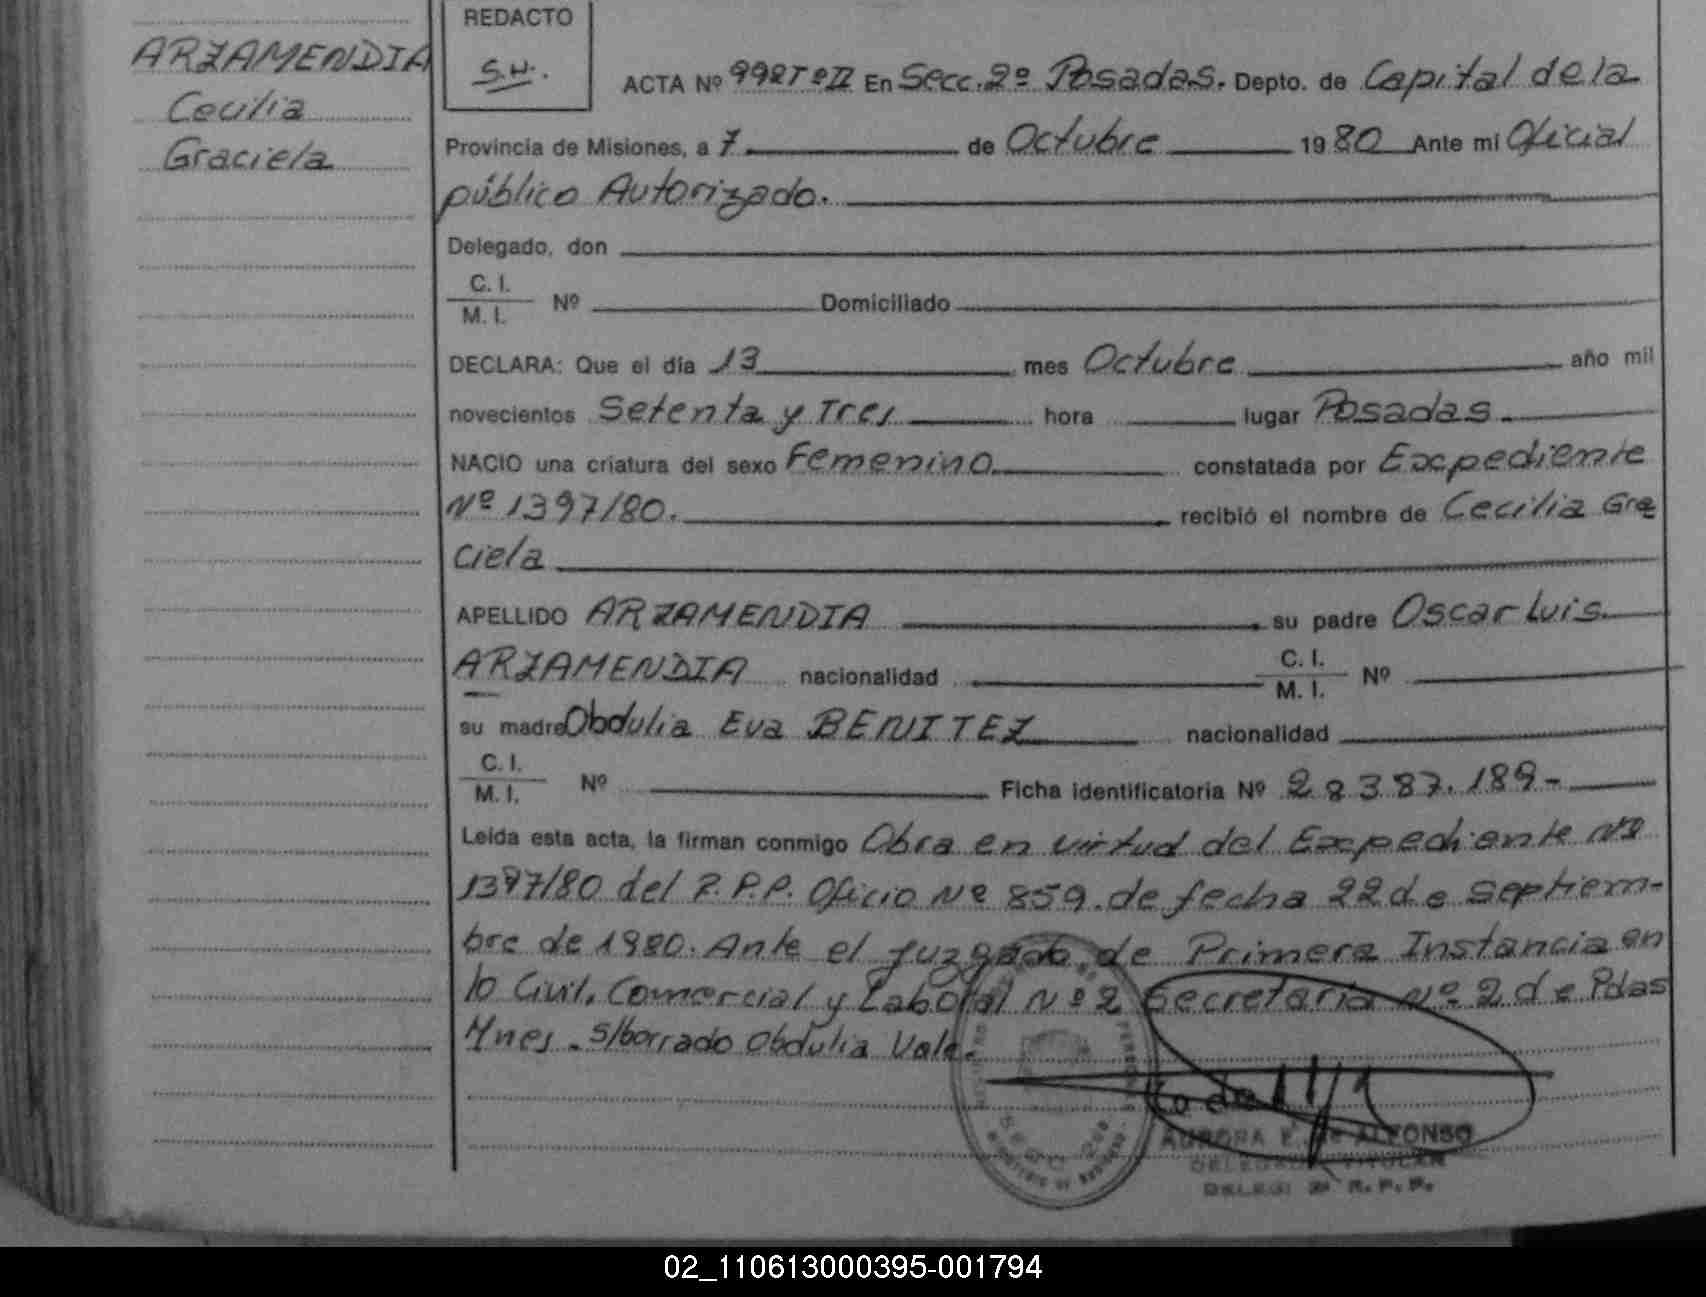 ARZAMENDIA
Cecilia
Graciela
REDACTO
S.H.
ACTA Nº 992 Tº II En Secc. 2º Posadas. Depto. de Capital de la
Provincia de Misiones, a 7 de Octubre 1980 Ante mi Oficial
público Autorizado.
Delegado, don
C. I.
M. I. Nº Domiciliado
DECLARA: Que el día 13 mes Octubre año mil
novecientos Setenta y Tres hora lugar Posadas
NACIO una criatura del sexo Femenino constatada por Expediente
Nº 1397/80. recibió el nombre de Cecilia Gra
ciela
APELLIDO ARZAMENDIA su padre Oscar Luis
ARZAMENDIA nacionalidad C. I.
M. I. Nº
su madre Obdulia Eva BENITEZ nacionalidad
C. I.
M. I. Nº Ficha identificatoria Nº 28387.189-
Leída esta acta, la firman conmigo Obra en virtud del Expediente Nº
1397/80 del R.P.P. Oficio Nº 859. de fecha 22 de septiem-
bre de 1980. Ante el juzgado de Primera Instancia en
lo Civil, Comercial y Laboral Nº 2 Secretaria Nº 2 de Pdas
Mnes. s/borrado Obdulia Vale.
AURORA E. de ALFONSO
DELEGADA TITULAR
DELEG. 2ª R. P. P.
02_110613000395-001794